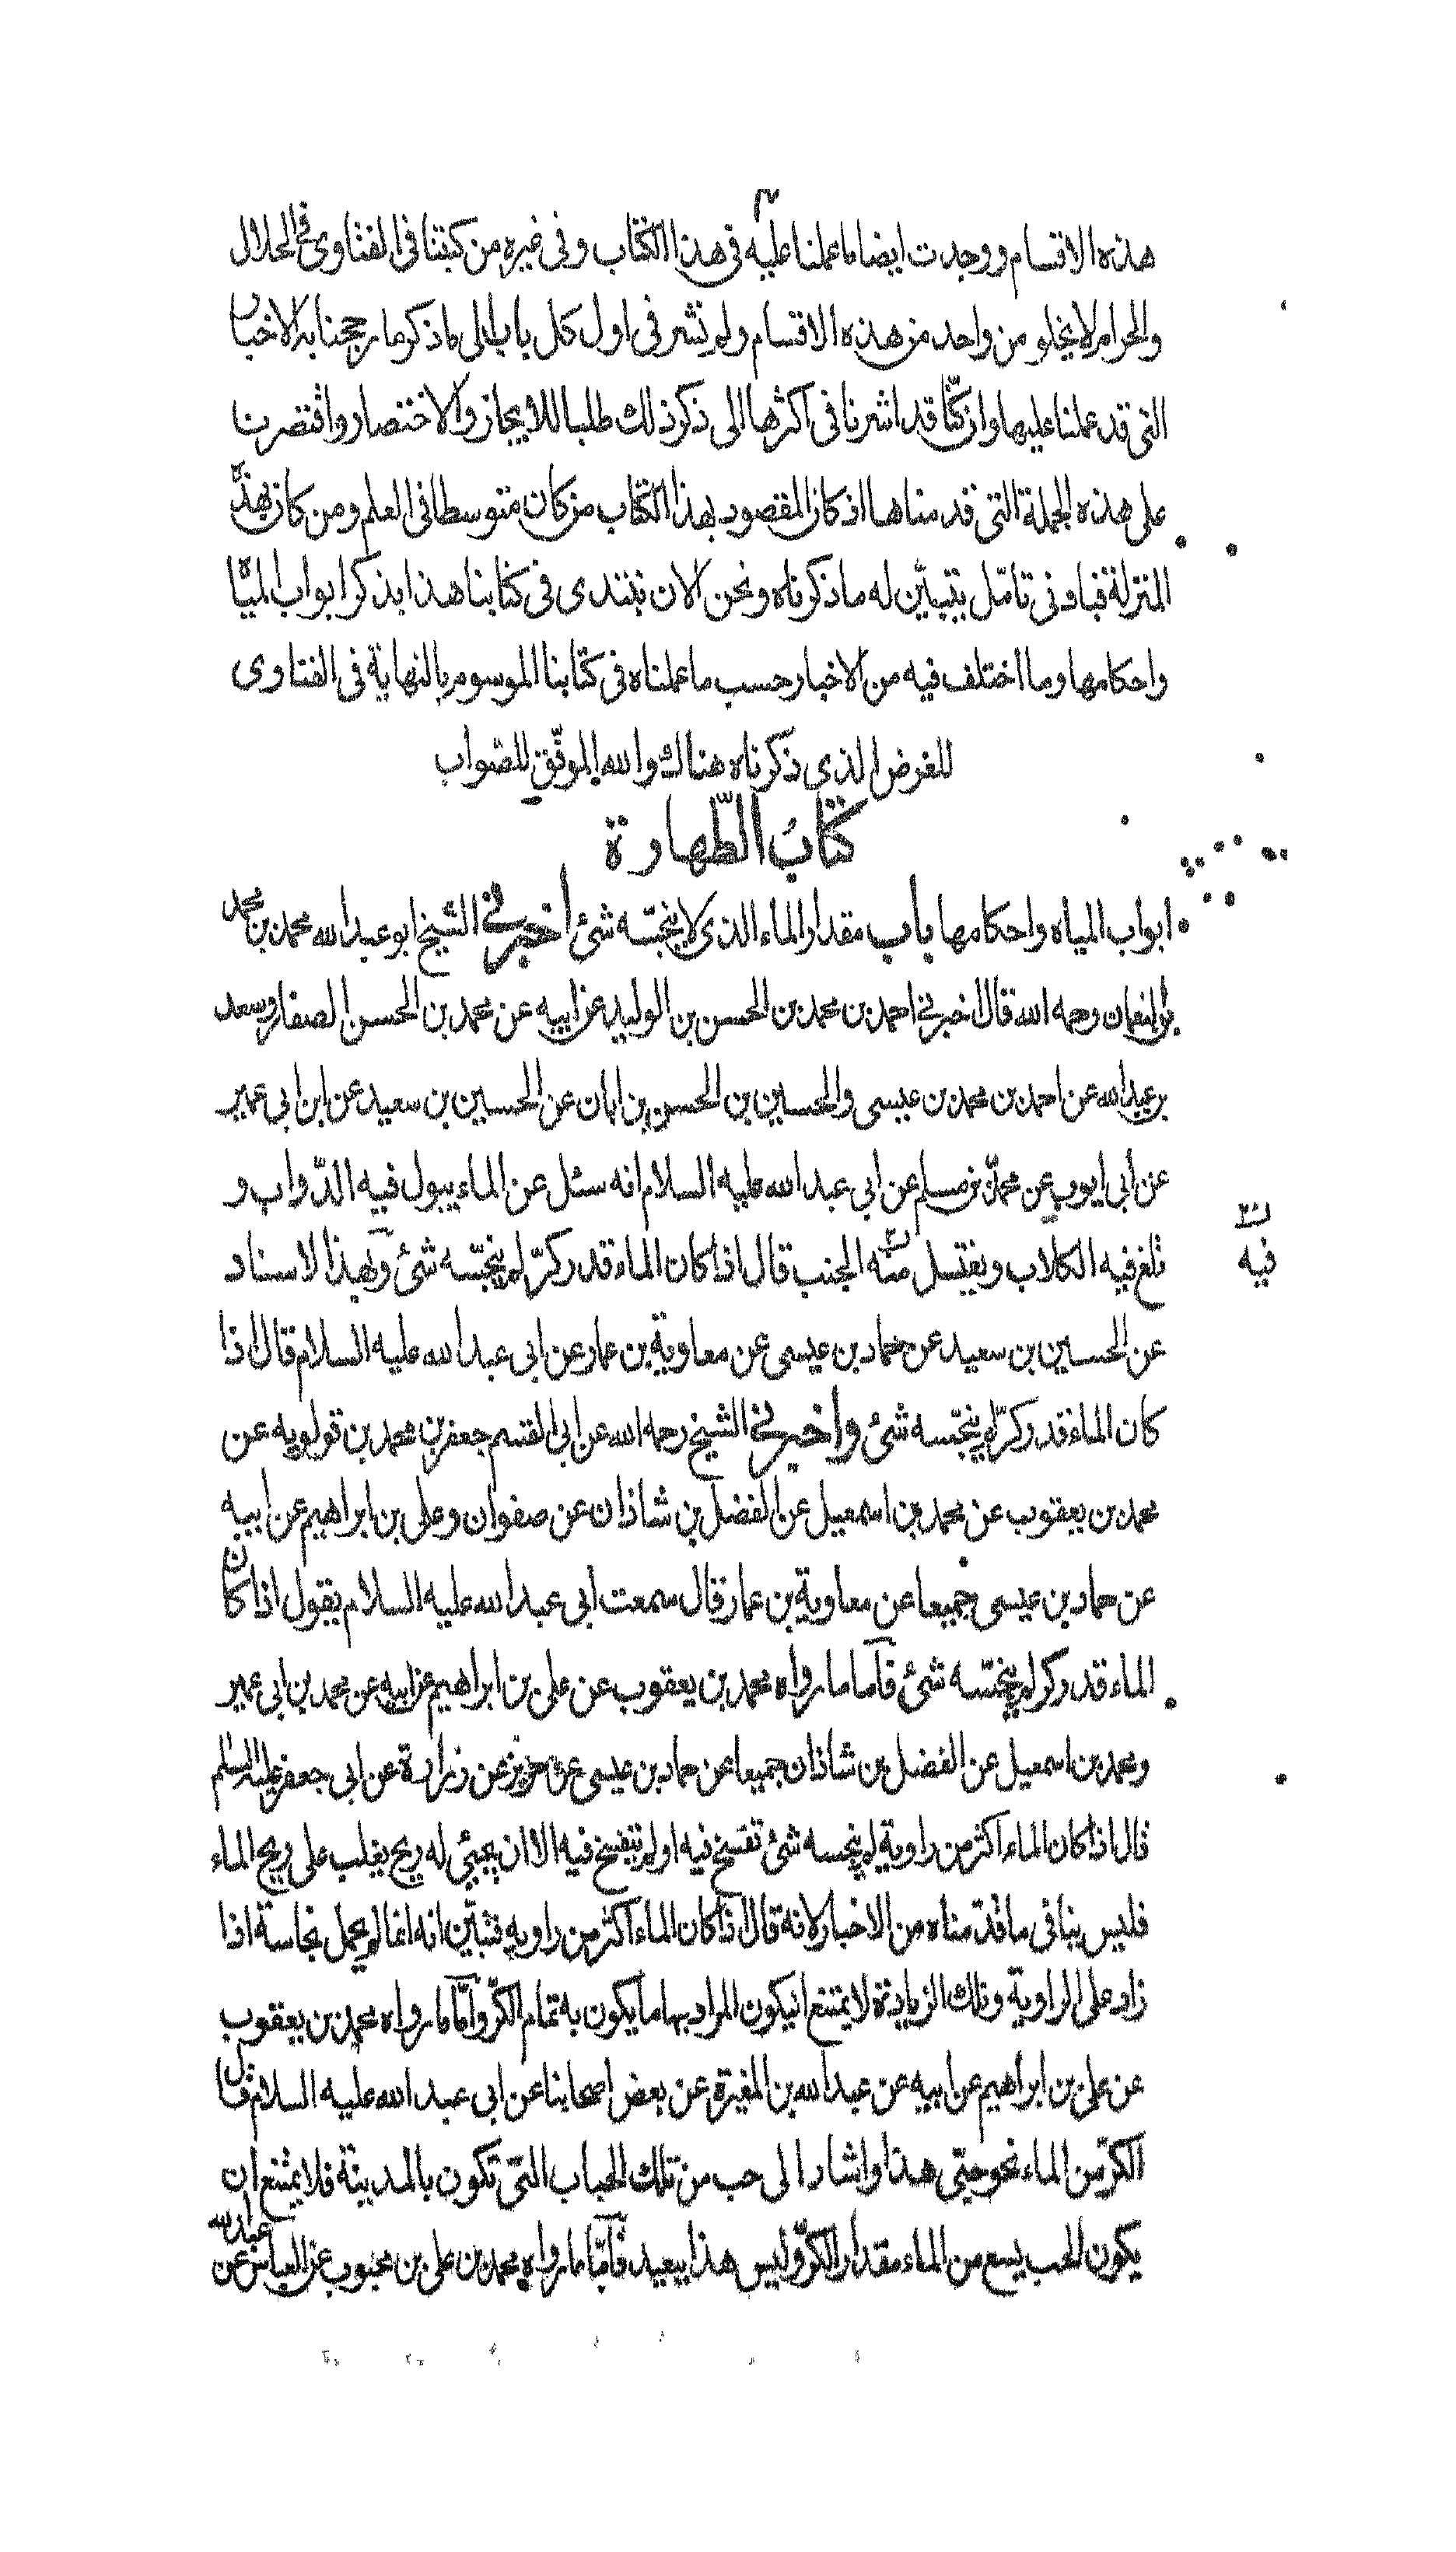 هذه الاقسام ووجدت ايضا ما عملنا عليه فى هذا الكتاب وفى غيره من كتبنا فى الفتاوى فى الحلال
والحرام لا يخلو من واحد من هذه الاقسام ولم نشر فى اول كل باب الى ما ذكر ما رجحنا به الاخبار
التى قد عملنا عليها وان كنّا قد اشرنا فى اكثرها الى ذكر ذلك طلبا للايجاز والاختصار واقتصرنا
على هذه الجملة التى قد مناها اذ كان المقصود بهذا الكتاب من كان متوسطا فى العلم ومن كان بهذه
المنزلة فباد نى تامّل يتبيّن له ما ذكرناه ونحن الان نبتدى فى كتابنا هذا بذكر ابواب الميّاه
واحكامها وما اختلف فيه من الاخبار حسب ما عملناه فى كتابنا الموسوم بالنهاية فى الفتاوى
للغرض الذى ذكرناه هناك والله الموفّق للصّواب
كتابُ الطّهارة
ابواب المياه واحكامها باب مقدار الماء الذى لا ينجّسه شئ أخبرنى الشّيخ ابو عبد الله محمد بن محمد
بن النعمان رحمه الله قال اخبرنى احمد بن محمد بن الحسن بن الوليد عن ابيه عن محمد بن الحسن الصفار وسعد
بن عبد الله عن احمد بن محمد بن عيسى والحسين بن الحسن بن ابان عن الحسين بن سعيد عن ابن ابى عمير
عن أبى ايوب عن محمّد بن مسلم عن ابى عبد الله عليه السلام انه سئل عن الماء يبول فيه الدّواب و
تلغ فيه الكلاب ويغتسل منه الجنب قال اذا كان الماء قد ركرّ لم ينجّسه شئ وبهذا الاسناد
فيه
عن الحسين بن سعيد عن حماد بن عيسى عن معاوية بن عمار عن ابى عبد الله عليه السلام قال اذا
كان الماء قد ركرّ لم ينجّسه شئ وأخبرنى الشيخ رحمه الله عن ابى القسم جعفر بن محمد بن قولويه عن
محمد بن يعقوب عن محمد بن اسمعيل عن الفضل بن شاذان عن صفوان وعلى بن ابراهيم عن ابيه
عن حماد بن عيسى جميعا عن معاوية بن عمار قال سمعت ابى عبد الله عليه السلام يقول اذا كان
الماء قدر كر لم ينجّسه شئ فأما ما رواه محمد بن يعقوب عن على بن ابراهيم عن ابيه عن محمد بن ابى عمير
ومحمد بن اسمعيل عن الفضل بن شاذان جميعا عن حماد بن عيسى عن حريز عن زرارة عن ابى جعفر عليه السلم
قال اذا كان الماء اكثر من راوية لم ينجسه شئ تفسخ فيه او لم يتفسخ فيه الا ان يجيئ له ريح يغلب على ريح الماء
فليس ينافى ما قدّ مناه من الاخبار لانه قال اذا كان الماء اكثر من راوية فتبيّن انه انما لم يحمل نجاسة اذا
زاد على الراوية وتلك الزيادة لا يمتنع انيكون المراد بها ما يكون به تمام الكرّ وأمّا ما رواه محمد بن يعقوب
عن على بن ابراهيم عن ابيه عن عبد الله بن المغيرة عن بعض اصحابنا عن ابى عبد الله عليه السلام قال
الكرّ من الماء نحو حبّى هذا واشار الى حب من تلك الحباب التى تكون بالمدينة فلا يمتنع ان
يكون الحب يسع من الماء مقدار الكرّ وليس هذا ببعيد فأمّا ما رواه محمد بن على بن محبوب عن العباس عن عبد الله